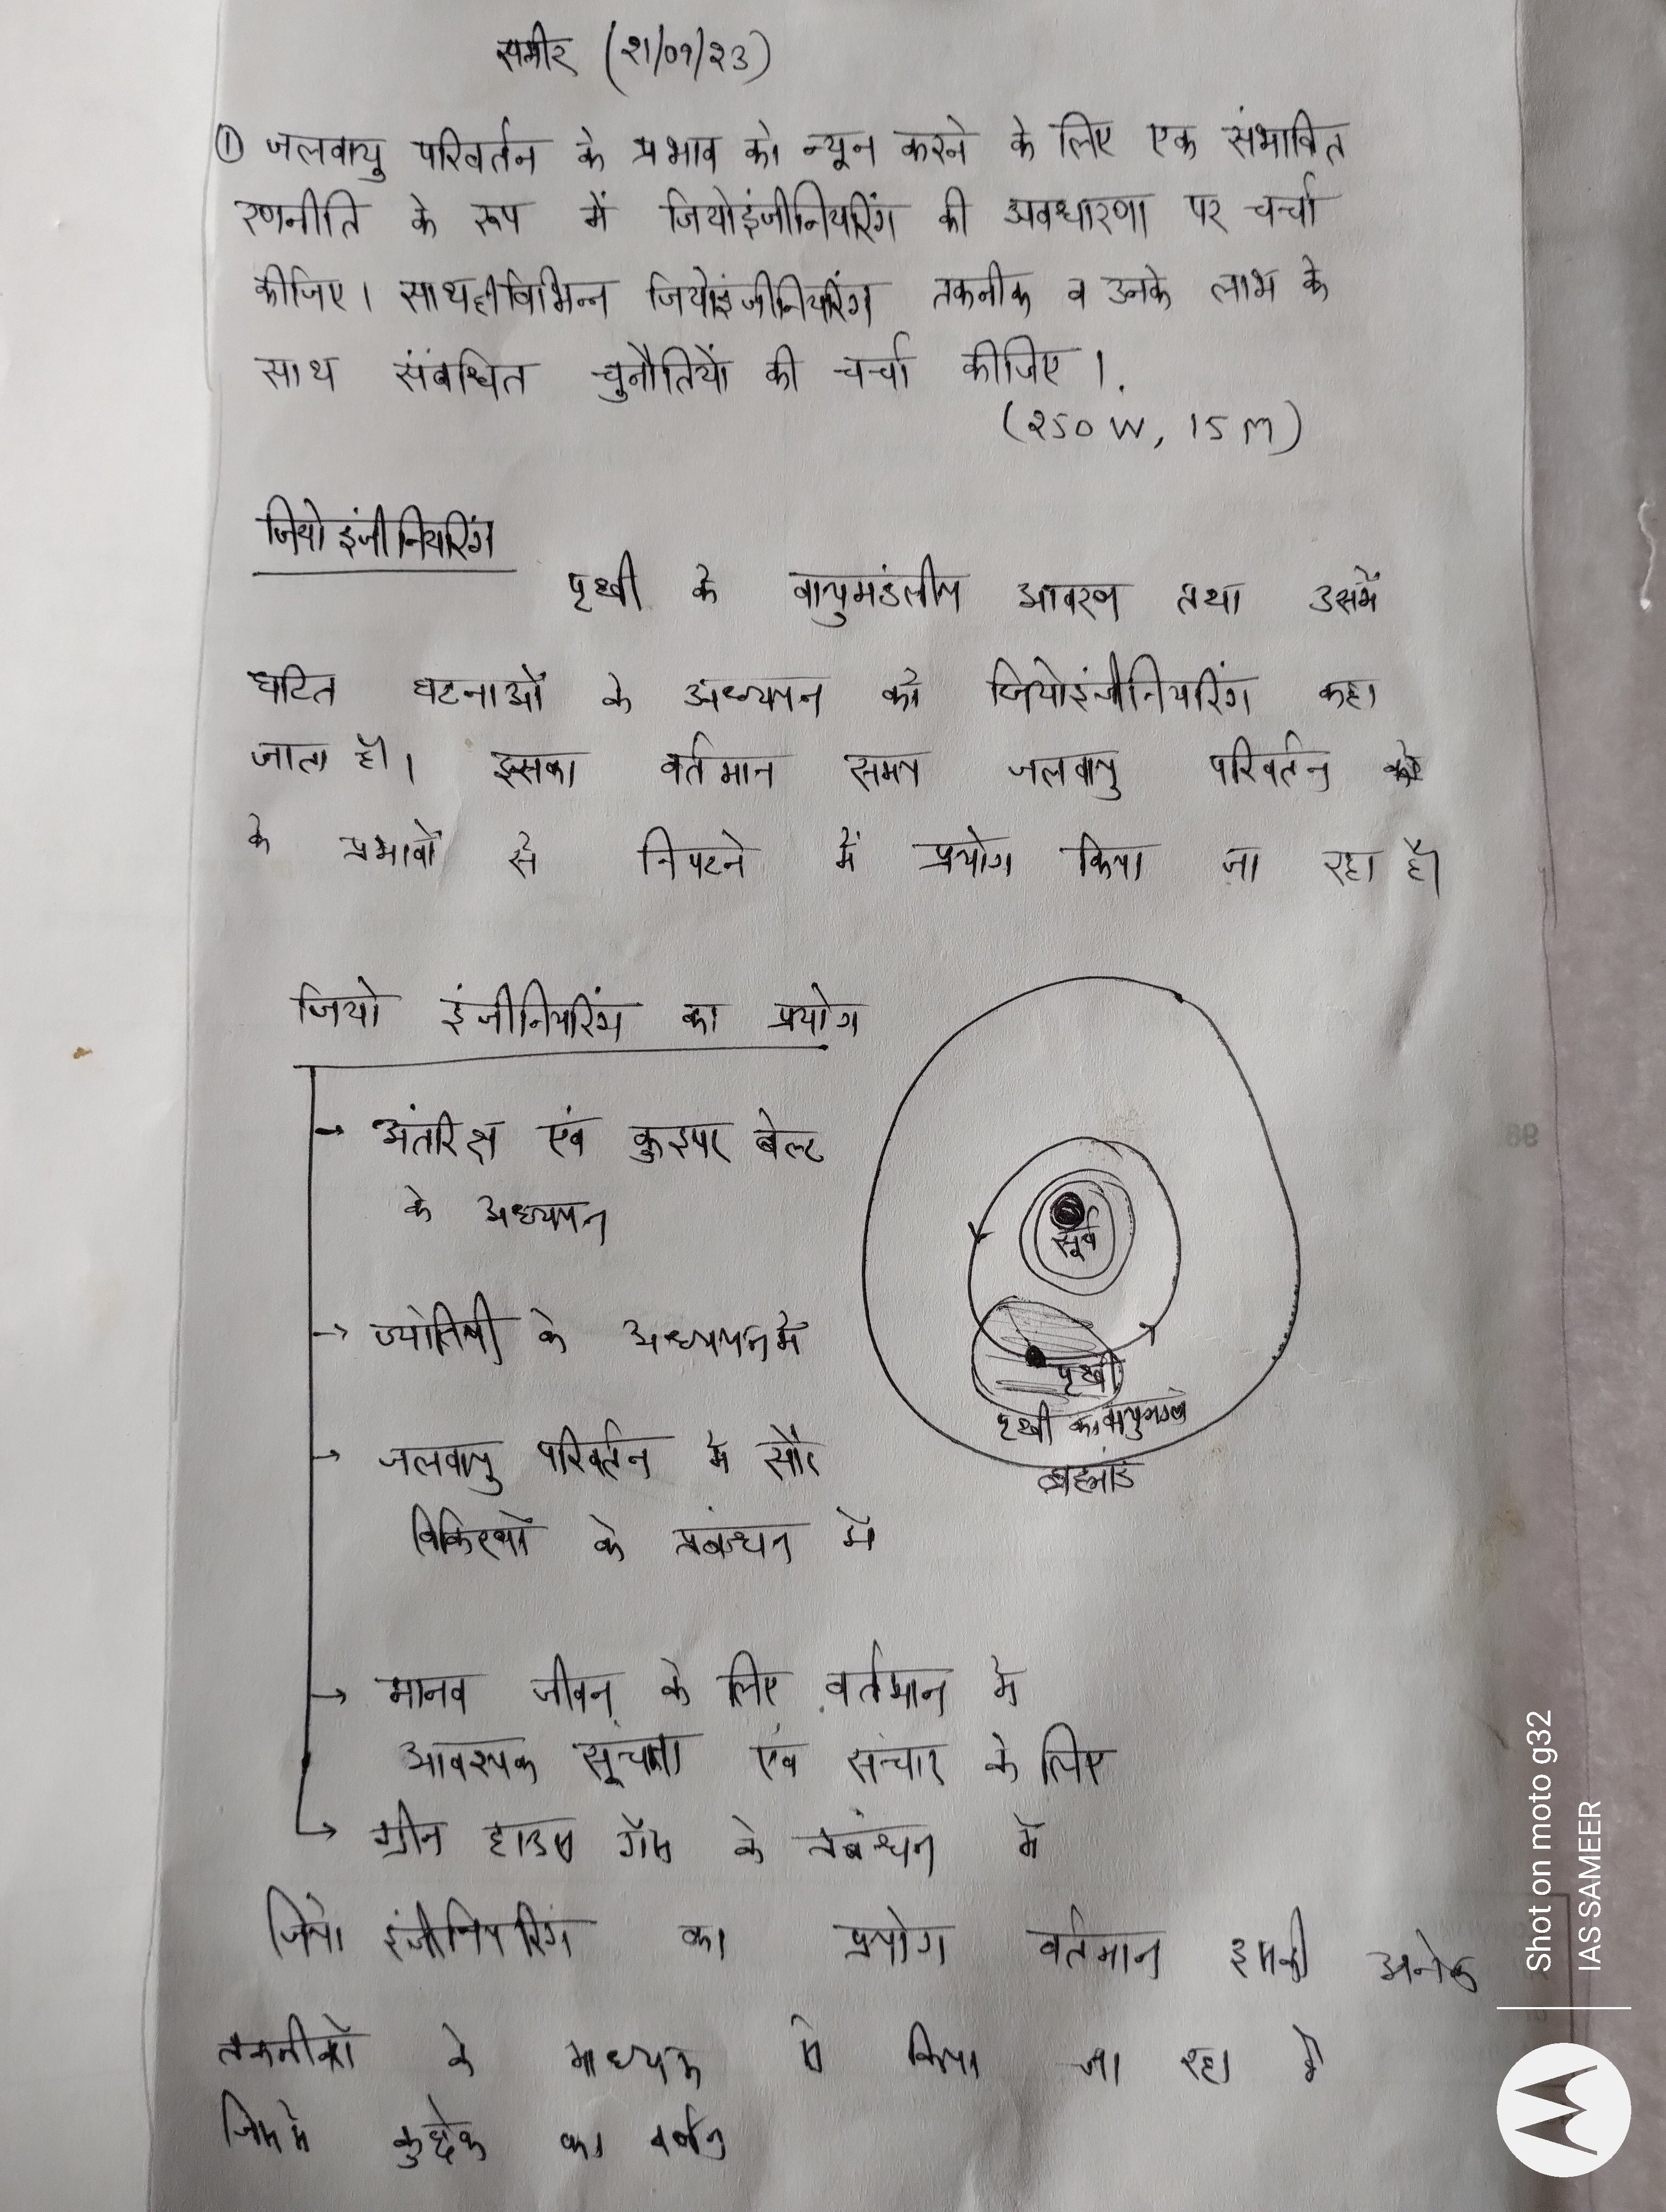 समीर (21/09/23)
① जलवायु परिवर्तन के प्रभाव को न्यून करने के लिए एक संभावित
रणनीति के रूप में जियोइंजीनियरिंग की अवधारणा पर चर्चा
कीजिए। साथही विभिन्न जियोइंजीनियरिंग तकनीक व उनके लाभ के
साथ संबंधित चुनौतियों की चर्चा कीजिए।
(250 W, 15 M)
जियो इंजीनियरिंग
पृथ्वी के वायुमंडलीय आवरण तथा उसमें
घटित घटनाओं के अध्ययन को जियोइंजीनियरिंग कहा
जाता है। इसका वर्तमान समय जलवायु परिवर्तन
के प्रभावों से निपटने में प्रयोग किया जा रहा है।
जियो इंजीनियरिंग का प्रयोग
→ अंतरिक्ष एवं कुइपर बेल्ट
के अध्ययन
→ ज्योतिषी के अध्ययन में
→ जलवायु परिवर्तन में सौर
विकिरणों के प्रबंधन में
→ मानव जीवन के लिए वर्तमान में
आवश्यक सूचना एवं संचार के लिए
→ ग्रीन हाउस गैस के प्रबंधन में
सूर्य
पृथ्वी
पृथ्वी का वायुमण्डल
ब्रह्मांड
जियो इंजीनियरिंग का प्रयोग वर्तमान इसकी अनेक
तकनीकों के माध्यम से किया जा रहा है
जिसमें कुछेक का वर्णन
Shot on moto g32
IAS SAMEER